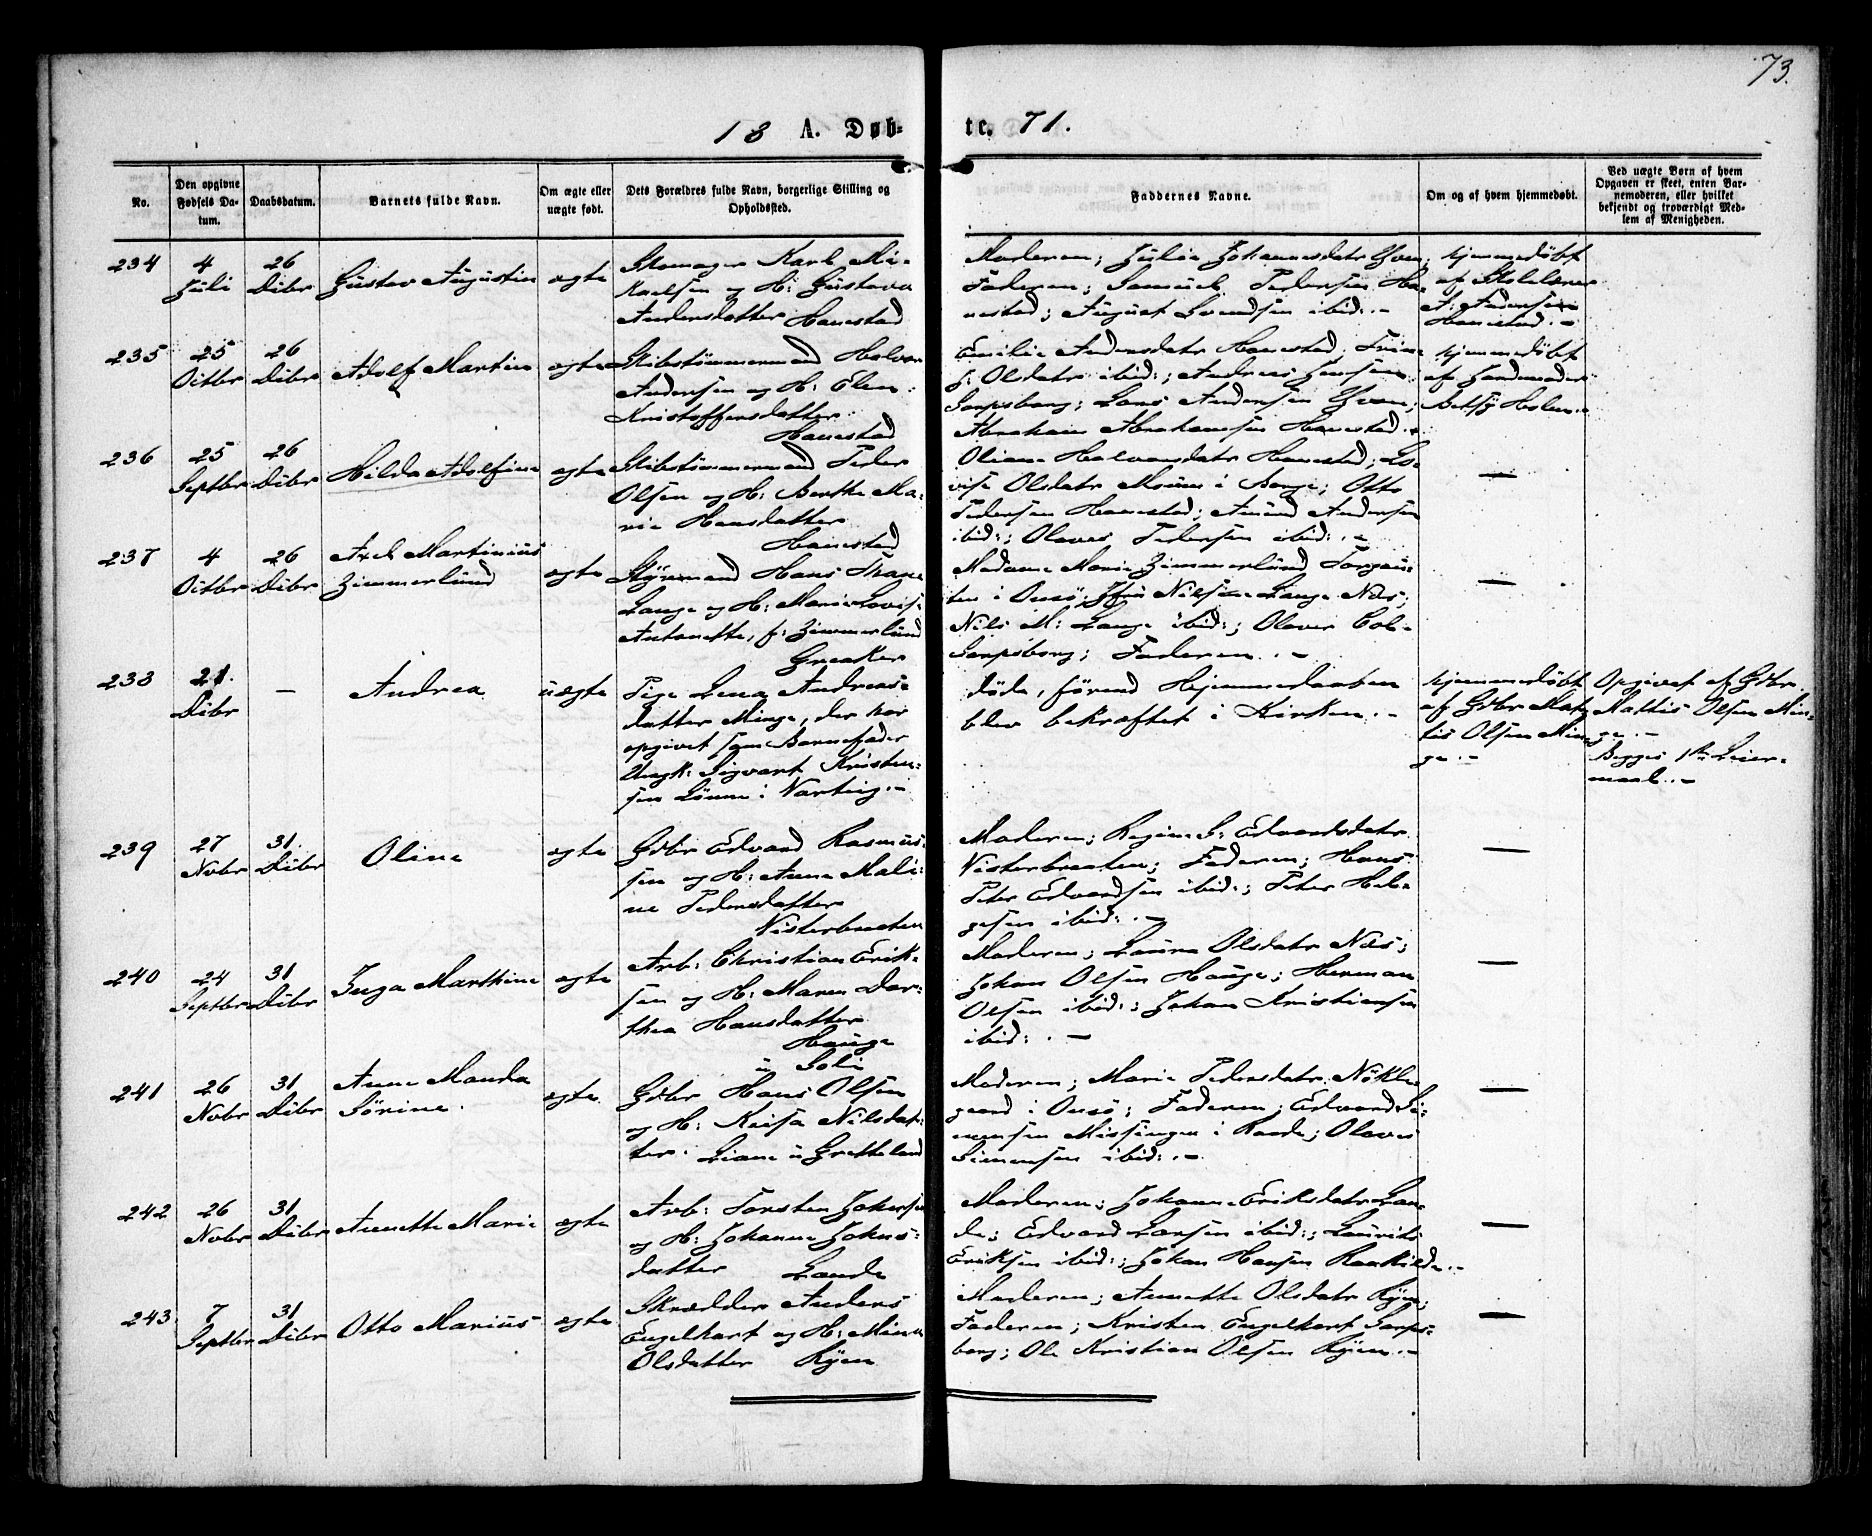 73.
18 A. Døb- te. 71.
No.
Den opgivne
Fødsels Da-
tum.
Daabsdatum.
Barnets fulde Navn.
Om ægte eller
uægte født.
Dets Forældres fulde Navn, borgerlige Stilling og
Opholdssted.
Faddernes Navne.
Om og af hvem hjemmedøbt.
Ved uægte Børn af hvem
Opgaven er skeet, enten Bar-
nemoderen, eller hvilket
bekjendt og troværdigt Med-
lem af Menigheden.
234
4
Juli
26
Dcbr
Gustav Augustin
ægte
Skomager Karl Mi-
kaelsen og H: Gustava
Andersdatter Hanestad
Moderen; Julie Johannesdatr
Faderen; Samuel Pedersen Ha-
nestad; August Svendsen ibid: .-
Hjemmedøbt
af Skolelærer
A: Andersen
Hanestad .-
235
25
Octbr
26
Dcbr
Adolf Martin
ægte
Skibstømmermand Halvor
Andersen og H: Elen
Kristoffersdatter
Hanestad
Emilie Andersdatr Hanestad,
J: Olsdatr ibid:; Andreas Jensen
Sarpsborg; Lars Andersen
Abraham Abrahamsen Hanestad .-
Hjemmedøbt
af Jordmoder
Betsy Holm .-
236
25
Septbr
26
Dcbr
Hilda Adolfine
ægte
Skibstømmermand Peder
Olsen og H: Berthe Ma-
rie Hansdatter
Hanestad
Oliane Halvorsdatr Hanestad; Lo-
vise Olsdatr Moum i Borge; Otto
Pedersen Hanestad; Amund Andersen
ibid:; Olaves Pedersen ibid: .-
—
237
4
Octbr
26
Dcbr
Axel Martinius
Zimmerlund
ægte
Styrmand Hans Thrane
Lange og H: Marie Lovise
Antonette, f: Zimmerlund
Greaker
Madame Marie Zimmerlund Torgau-
ten i Onsø; Jfru Nilsine Lange Næs;
Nils M: Lange ibid:; Olaver Col-
Sarpsborg; Faderen .-
—
238
21.
Dcbr
—
Andrea
uægte
Pige Lena Andreas-
datter Minge, der har
opgivet som Barnefader
Ungk: Sigvart Kristen-
sen Lunne i Varteig .-
døde, førend Hjemmedaaben
blev bekræftet i Kirken .-
Hjemmedøbt
af Gdbr Mat-
tis Olsen Min-
ge .-
Opgivet af Gdbr
Mattis Olsen Min-
ge .-
Begges 1ste Leier-
maal .-
239
27
Nobr
31.
Dcbr
Oline
ægte
Gdbr Edvard Rasmus-
sen og H: Anne Mali-
ne Pedersdatter
Visterbraaten
Moderen; Regine S: Edvardsdatr
Visterbraaten; Faderen; Hans
Peter Edvardsen ibid:; Peter Hel-
gesen ibid: .-
—
240
24
Septbr
31
Dcbr
Inga Marthine
ægte
Arb: Christian Erik-
sen og H: Maren Dor-
thea Hansdatter
Hauge
u Soli
Moderen; Laura Olsdatr Næs;
Johan Olsen Hauge; Herman
Olsen ibid:; Johan Kristiansen
ibid: .-
—
241
26
Nobr
31
Dcbr
Anne Manda
Sørine.
ægte.
Gdbr Hans Olsen
og H: Kaisa Nilsdat-
ter. Liane u Gretteland
Moderen; Marie Pedersdatr Nökle-
gaard i Onsø; Faderen; Edvard Si-
mensen Missingen i Raade; Olaves
Simensen ibid: .-
—
242
26
Nobr
31
Dcbr
Annette Marie
ægte
Arb: Torsten Johnsen
og H: Johanne Johns-
datter Lande
Moderen; Johanne Eriksdatr Lan-
de; Edvard Larsen ibid:; Laurits
Eriksen ibid:; Johan Hansen Raakilde .-
—
243
7
Septbr
31
Dcbr
Otto Marius
ægte
Skrædder Anders
Engelhart og H: Mina
Olsdatter Ryen
Moderen; Annette Olsdatr Ryen;
Faderen; Kristen Engelhart Sarps-
borg; Ole Kristian Olsen Ryen .-
—